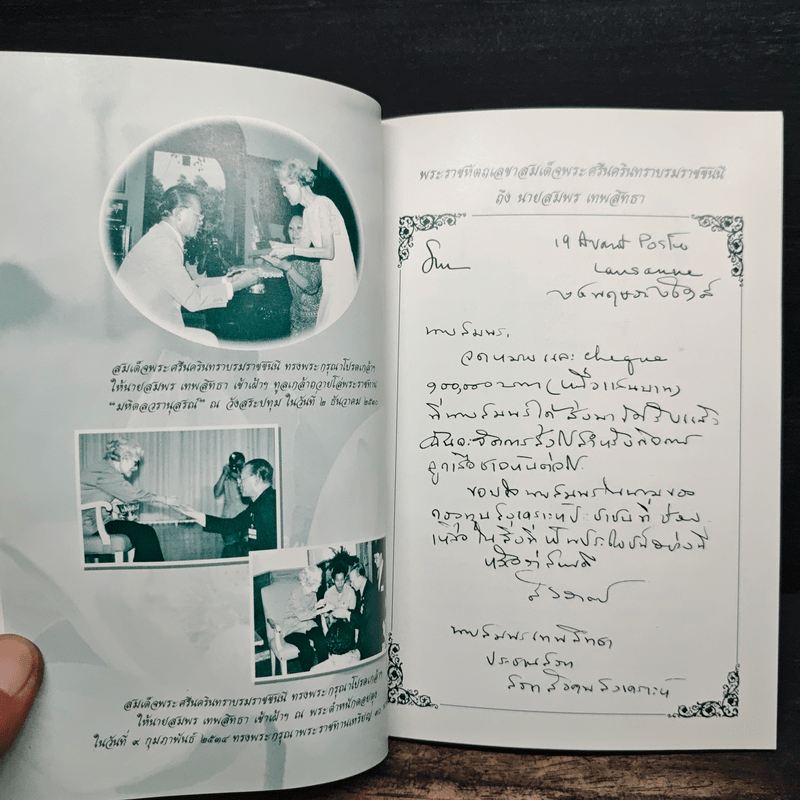 สมเด็จพระศรีนครินทราบรมราชชินนี ทรงพระกรุณาโปรดเกล้าฯ
ให้นายสมพร เทพสิทธา เข้าเฝ้าฯ ทูลเกล้าถวายโล่พระราชทาน
"มหิดลวรานุสรณ์" ณ วังสระปทุม ในวันที่ ๒ ธันวาคม
สมเด็จพระศรีนครินทราบรมราชชินนี ทรงพระกรุณาโปรดเกล้าฯ
ให้นายสมพร เทพสิทธา เข้าเฝ้าฯ ณ พระตำหนักดอยตุง
ในวันที่ ๙ กุมภาพันธ์ ๒๕๓๔ ทรงพระกรุณาพระราชทานเหรียญ
พระราชหัตถเลขาสมเด็จพระศรีนครินทราบรมราชชินนี
ถึง นายสมพร เทพสิทธา
19 Avant Poste
Lausanne
นายสมพร,
จดหมายและ cheque
๑๐๐,๐๐๐ บาท (หนึ่งแสนบาท)
ที่นายสมพรได้ส่งมา ได้รับแล้ว
ฉันจะจัดการส่งไปสำหรับกิจการ
ลูกเสือชาวบ้านต่อไป
ขอบใจนายสมพรในนามของ
กองทุนสงเคราะห์ประชาชนที่ช่วย
เหลือในสิ่งที่เป็นประโยชน์อย่างนี้
นายสมพร เทพสิทธา
ประธานสภา
สภาสังคมสงเคราะห์